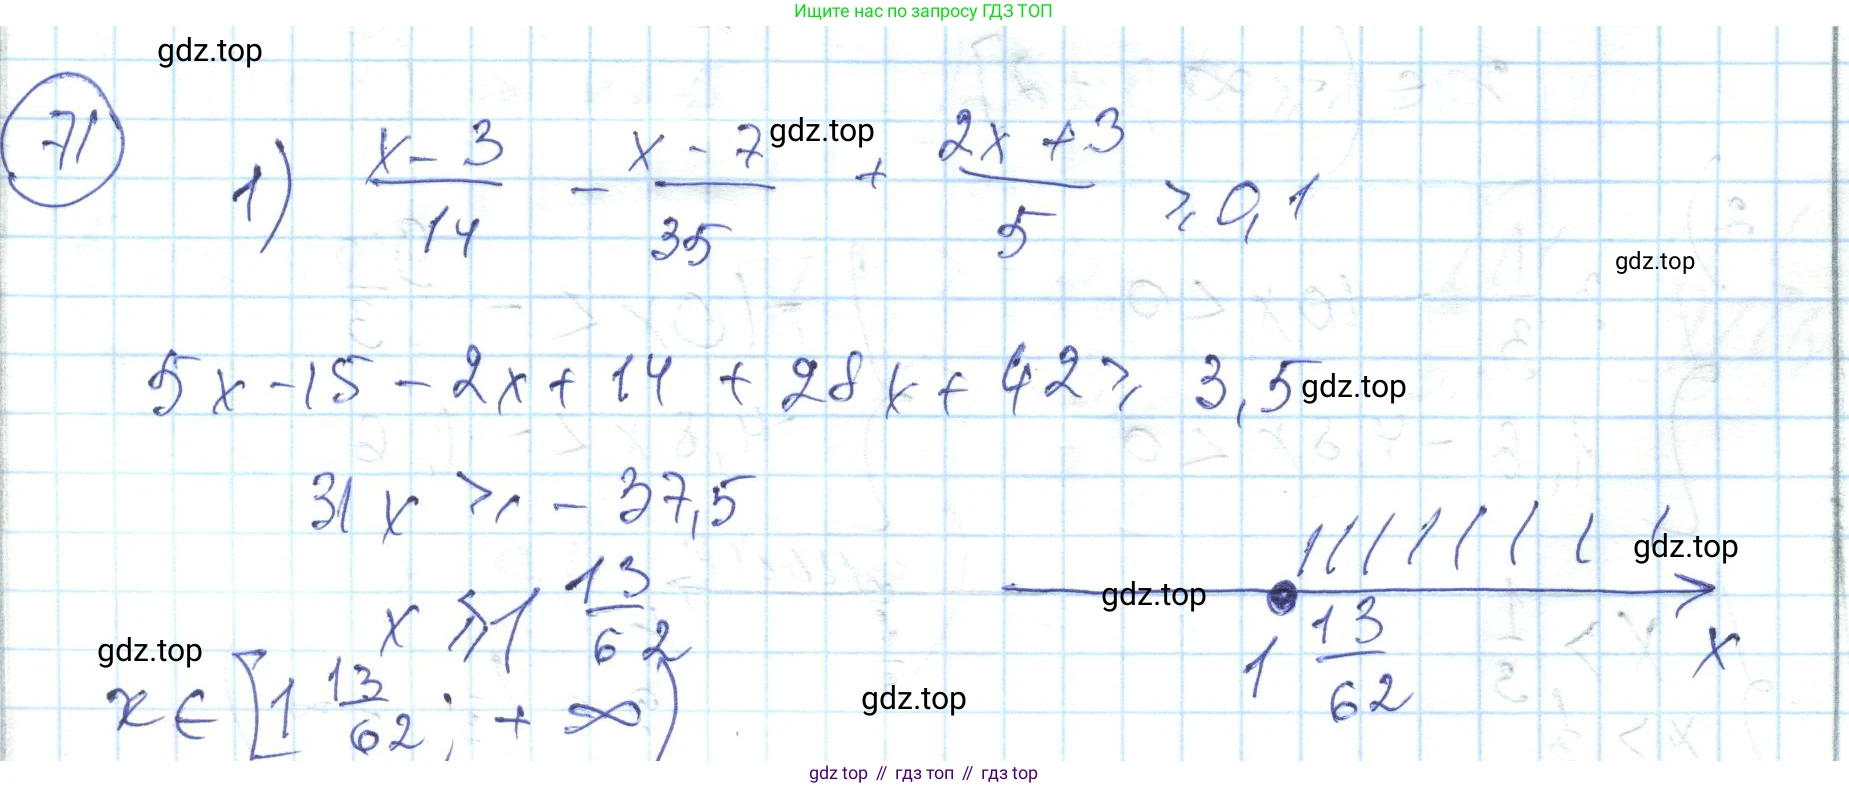 Ищите нас по запросу ГДЗ ТОП
gdz.top
71
1) (x-3)/14 - (x-7)/35 + (2x+3)/5 ⩾ 0,1
gdz.top
gdz.top
5x-15-2x+14+28x+42⩾3,5
gdz.top
31x ⩾ -37,5
x ⩾ 1 13/62
gdz.top
gdz.top
1 13/62
x
gdz.top
x ∈ [1 13/62; +∞)
gdz.top
gdz top // гдз топ // гдз top